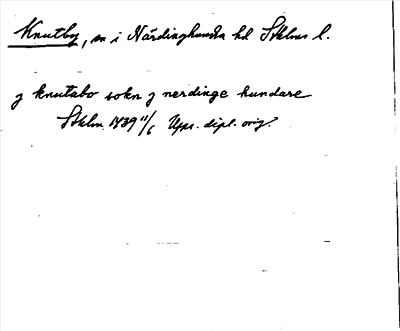 Knutby, sn i Närdinghundra hd Sthlms l.
ȝ knutabo sokn ȝ nerdinge hundare
Sthlm 1439 11/6 Upps. dipl. orig.